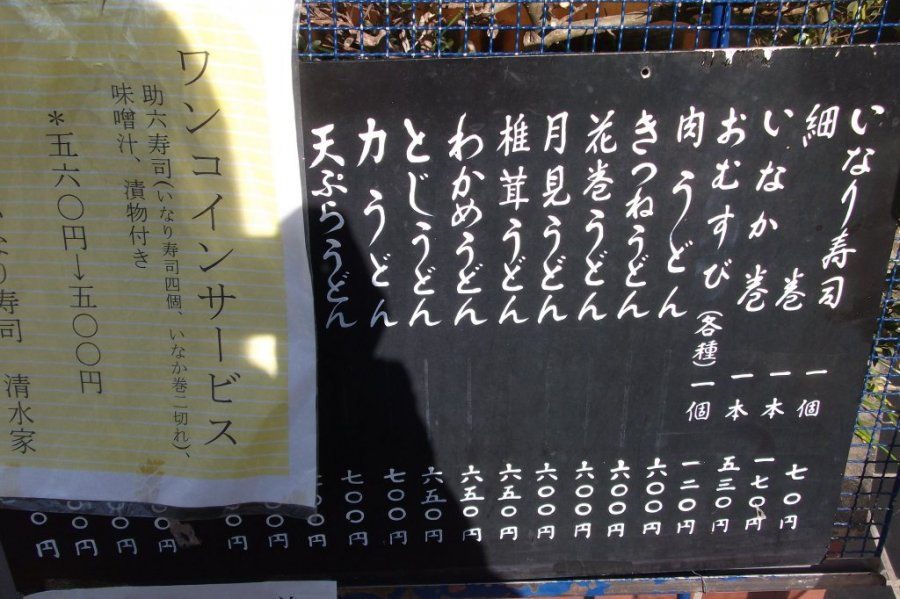 いなり寿司 一個 七〇円
細巻 一本 一七〇円
いなか巻 一本 五三〇円
おむすび(各種) 一個 一二〇円
肉うどん 六〇〇円
きつねうどん 六〇〇円
花巻うどん 六〇〇円
月見うどん 六〇〇円
椎茸うどん 六五〇円
わかめうどん 六五〇円
とじうどん 六五〇円
力うどん 七〇〇円
天ぷらうどん 七〇〇円
〇円
〇円
〇円
〇円
〇円
〇円
〇円
ワンコインサービス
助六寿司(いなり寿司四個、いなか巻二切れ)、
味噌汁、漬物付き
*五六〇円→五〇〇円
なり寿司 清水家